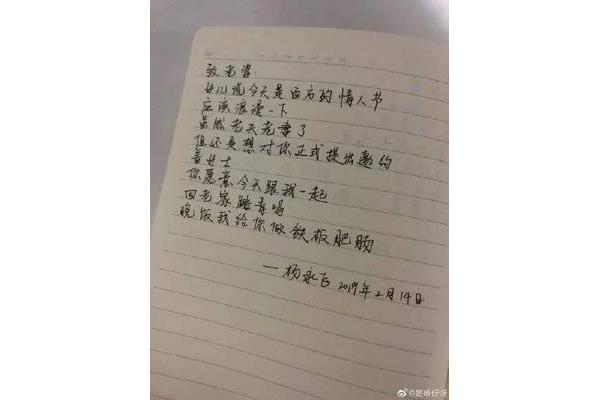 致老婆:
女儿说今天是西方的情人节
应该浪漫一下
虽然老夫老妻了
但还是想对你正式提出邀约
姜女士
你愿意今天跟我一起
回老家踏青吗
晚饭我给你做铁板肥肠
—杨永飞 2019年2月14日